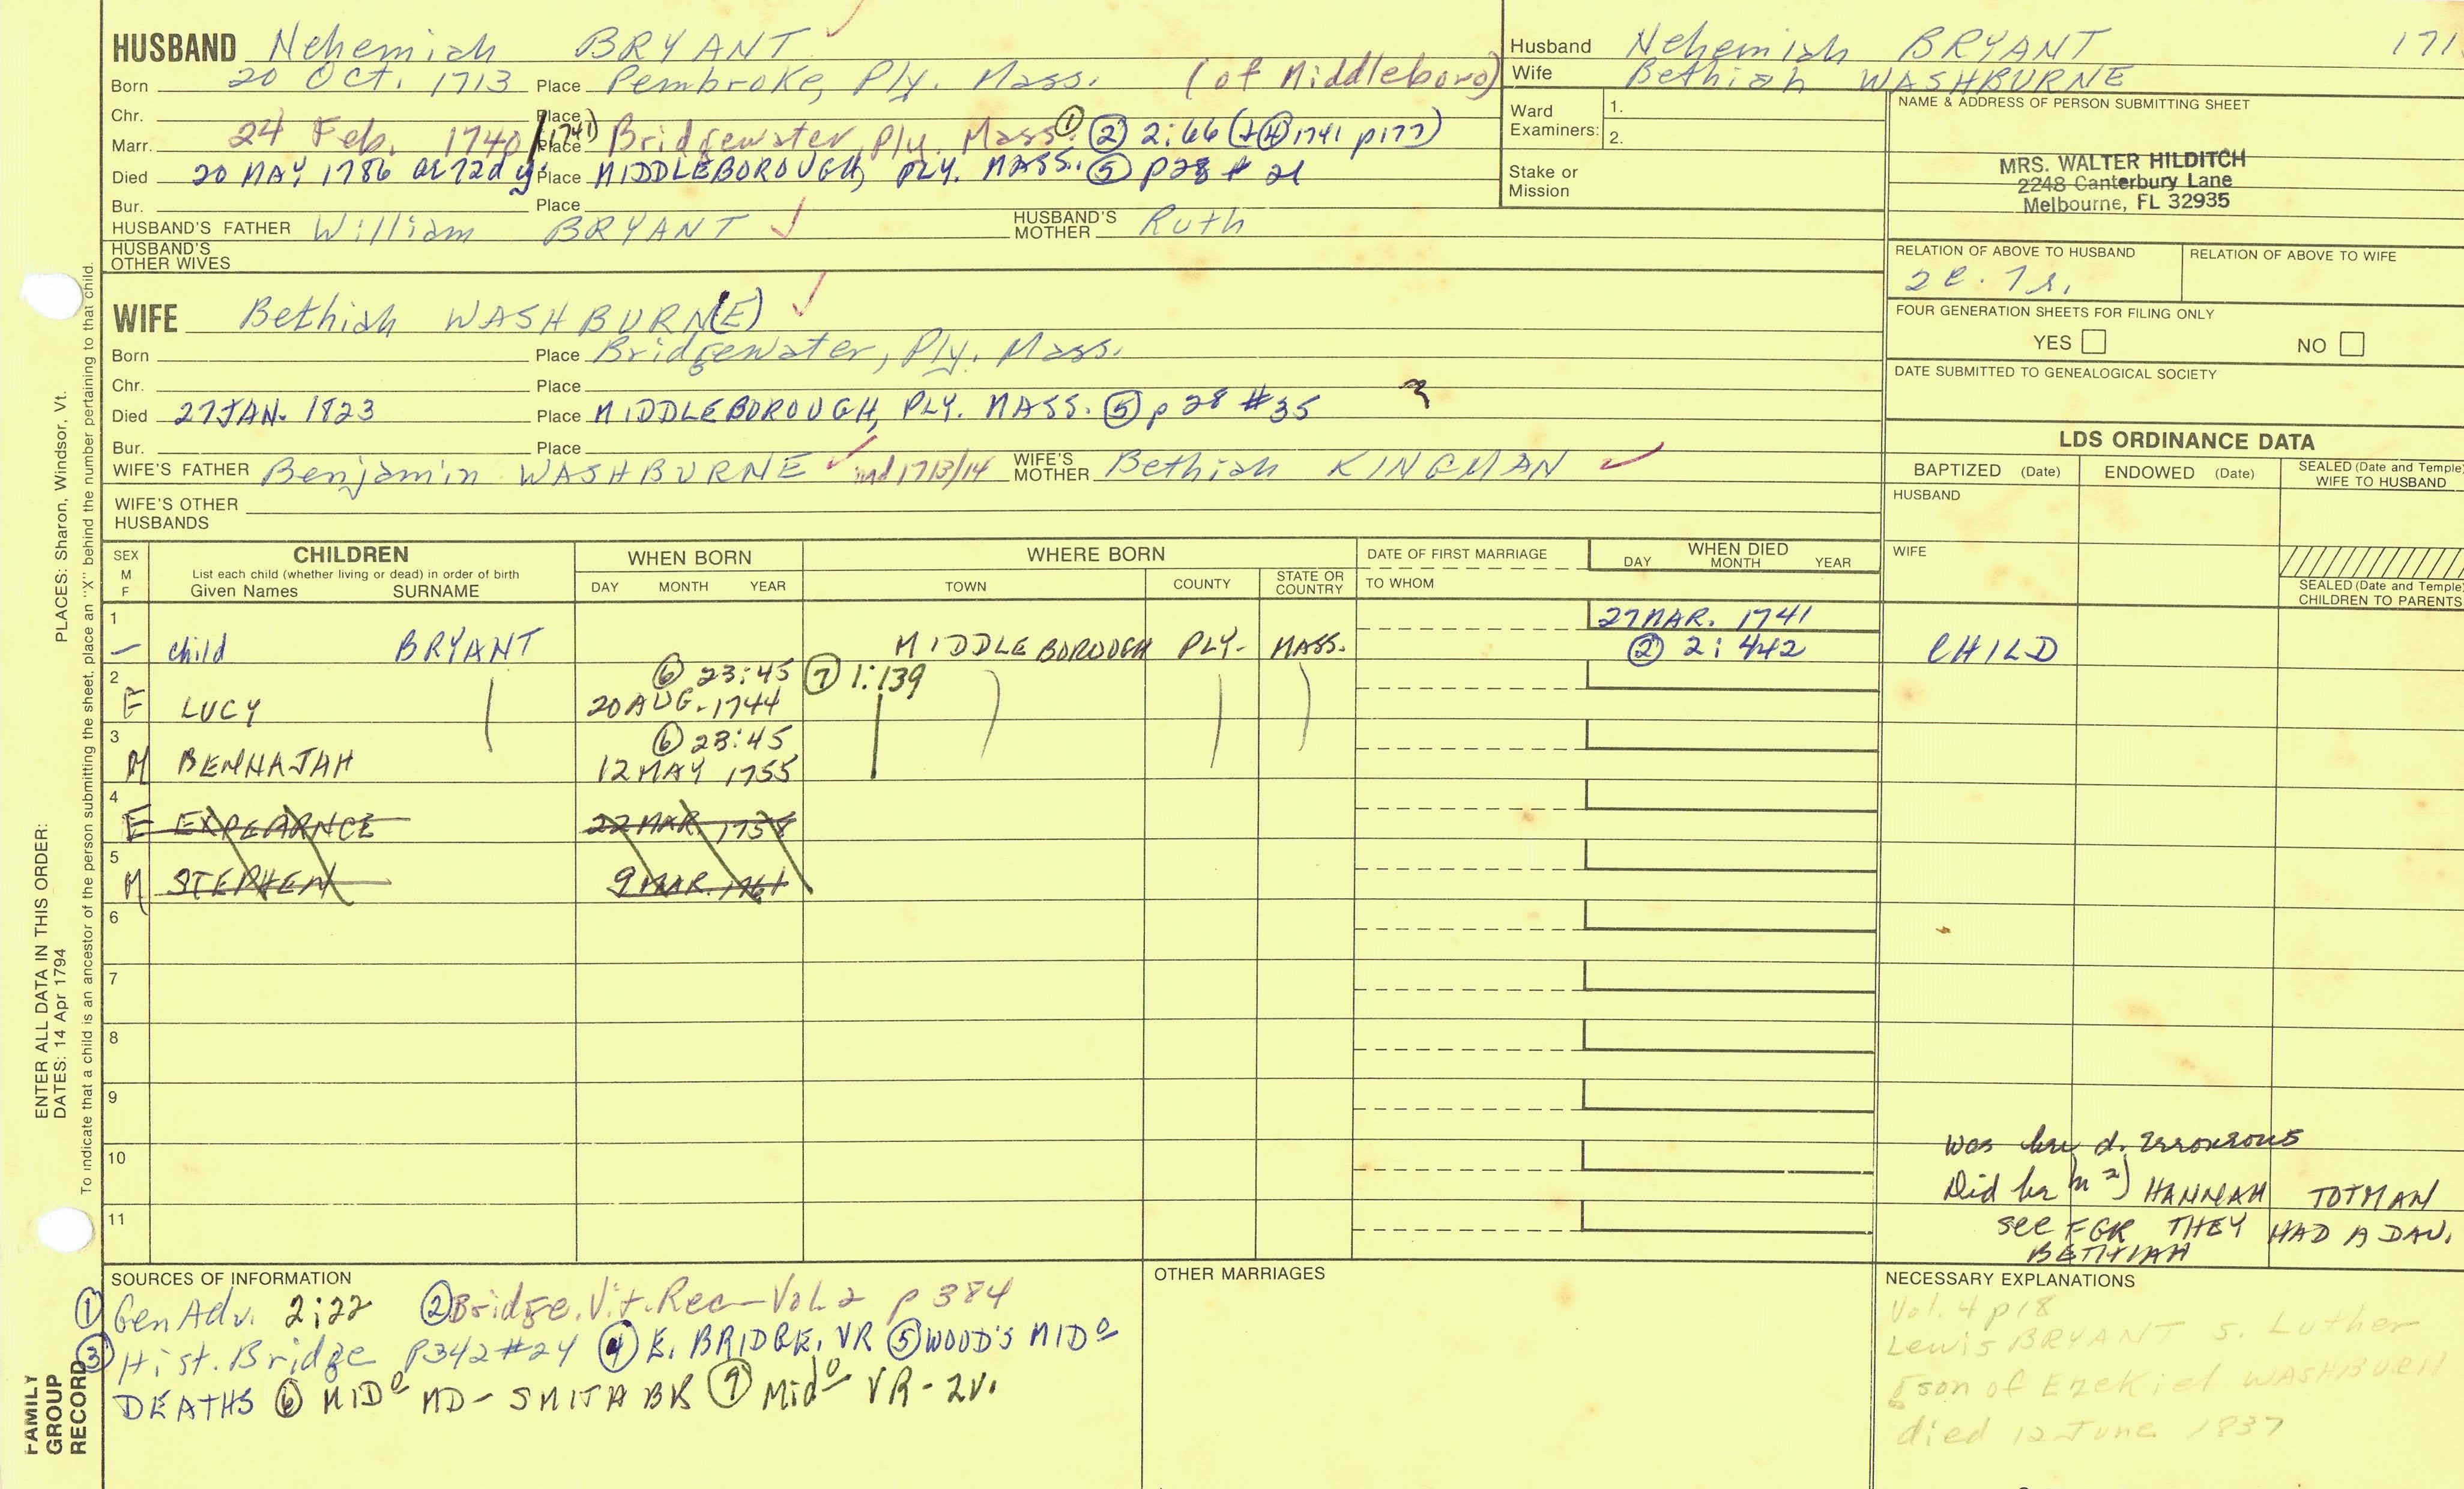 HUSBAND Nehemiah BRYANT
Born 20 Oct. 1713 Place Pembroke, Ply. Mass. (of Middleboro)
Chr. Place
Marr. 24 Feb. 1740/(1741) Place Bridgewater, Ply. Mass. ① ② 2:66 (+④ 1741 p177)
Died 20 MAY 1786 Place MIDDLEBOROUGH, PLY. MASS. ⑤ p28 # 21
Bur. Place
HUSBAND'S FATHER William BRYANT HUSBAND'S MOTHER Ruth
HUSBAND'S OTHER WIVES
Husband Nehemiah BRYANT 171
Wife Bethiah WASHBURNE
Ward Examiners: 1.
2.
Stake or Mission
NAME & ADDRESS OF PERSON SUBMITTING SHEET
MRS. WALTER HILDITCH
2248 Canterbury Lane
Melbourne, FL 32935
RELATION OF ABOVE TO HUSBAND RELATION OF ABOVE TO WIFE
2c. 7r.
FOUR GENERATION SHEETS FOR FILING ONLY
YES NO
DATE SUBMITTED TO GENEALOGICAL SOCIETY
WIFE Bethiah WASHBURN(E)
Born Place Bridgewater, Ply. Mass.
Chr. Place
Died 27 JAN. 1823 Place MIDDLEBOROUGH, PLY. MASS. ⑤ p 28 #35
Bur. Place
WIFE'S FATHER Benjamin WASHBURNE md 1713/14 WIFE'S MOTHER Bethiah KINGMAN
WIFE'S OTHER HUSBANDS
LDS ORDINANCE DATA
BAPTIZED (Date) ENDOWED (Date) SEALED (Date and Temple) WIFE TO HUSBAND
HUSBAND
WIFE
SEALED (Date and Temple) CHILDREN TO PARENTS
SEX M F CHILDREN WHEN BORN WHERE BORN DATE OF FIRST MARRIAGE WHEN DIED
List each child (whether living or dead) in order of birth
Given Names SURNAME DAY MONTH YEAR TOWN COUNTY STATE OR COUNTRY TO WHOM DAY MONTH YEAR
1 27 MAR. 1741
— child BRYANT MIDDLEBOROUGH PLY. MASS. ② 2:442 CHILD
2 ⑥ 23:45 ⑦ 1:139
F LUCY 20 AUG. 1744
3 ⑥ 23:45
M BENHAJAH 12 MAY 1755
4
F EXPEARNCE 22 MAR. 1758
5
M STEPHEN 9 MAR. 1761
6
7
8
9
10
11
was d. erroneous
Did he m 2) HANNAH TOTMAN
see FGR THEY HAD A DAU.
BETHIAH
SOURCES OF INFORMATION
① Gen Adv. 2:22 ② Bridge. Vit. Rec – Vol. 2 p 384
③ Hist. Bridge p342 #24 ④ E. BRIDGE. VR ⑤ WOOD'S MIDº
DEATHS ⑥ MIDº MD – SMITH BK ⑦ Midº VR – 2v.
OTHER MARRIAGES
NECESSARY EXPLANATIONS
Vol. 4 p18
Lewis BRYANT s. Luther
gson of Ezekiel WASHBURN
died 12 June 1837
ENTER ALL DATA IN THIS ORDER:
DATES: 14 Apr 1794 PLACES: Sharon, Windsor, Vt.
To indicate that a child is an ancestor of the person submitting the sheet, place an "X" behind the number pertaining to that child.
FAMILY GROUP RECORD